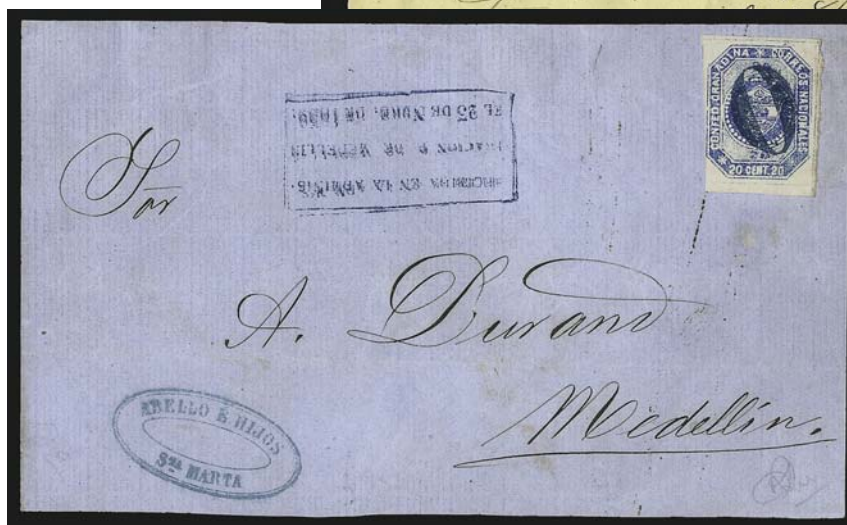 CONFED. GRANADINA * CORREOS NACIONALES
20 CENT. 20
EN LA ADMIN
DE MEDELLIN
EL 25 DE NVRE. DE 1859.
Sor
A. Durand
Medellin.
ABELLO É HIJOS
Sta. MARTA